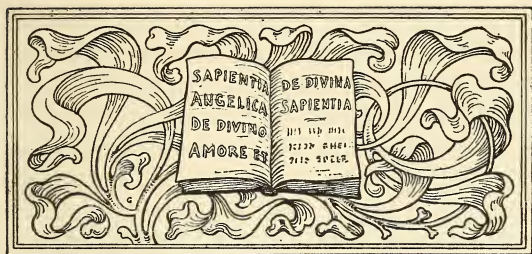 SAPIENTIA
ANGELICA
DE DIVINO
AMORE ET
DE DIVINA
SAPIENTIA
G